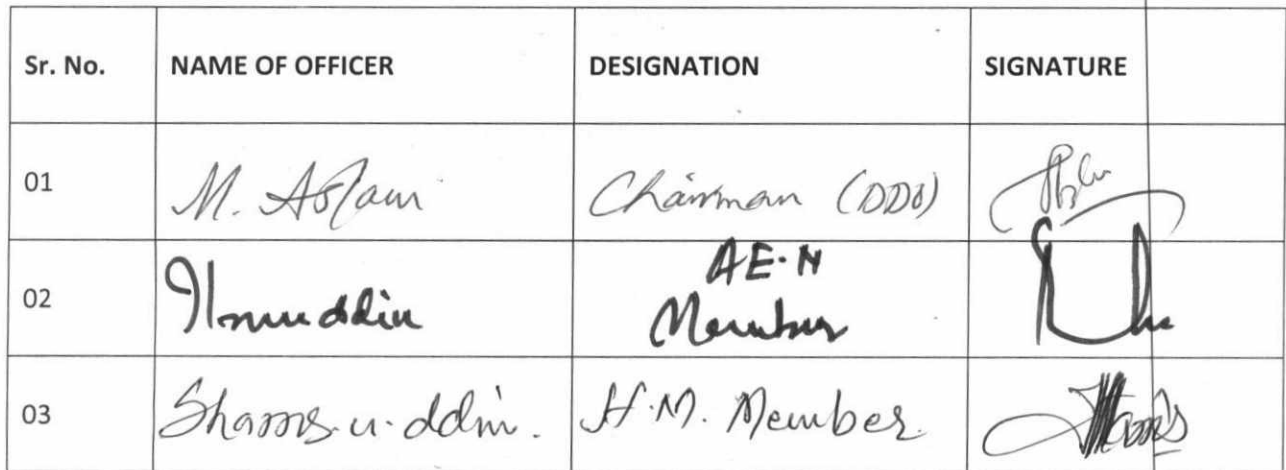 Sr. No. NAME OF OFFICER DESIGNATION SIGNATURE
01 M. Aslam Chairman (DDO)
02 A E·N
Member
03 Shams.u.ddin. H.M. Member.